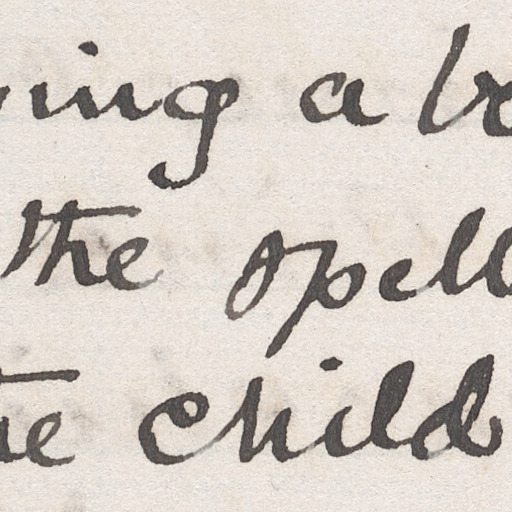 ing a b
the spell
e child